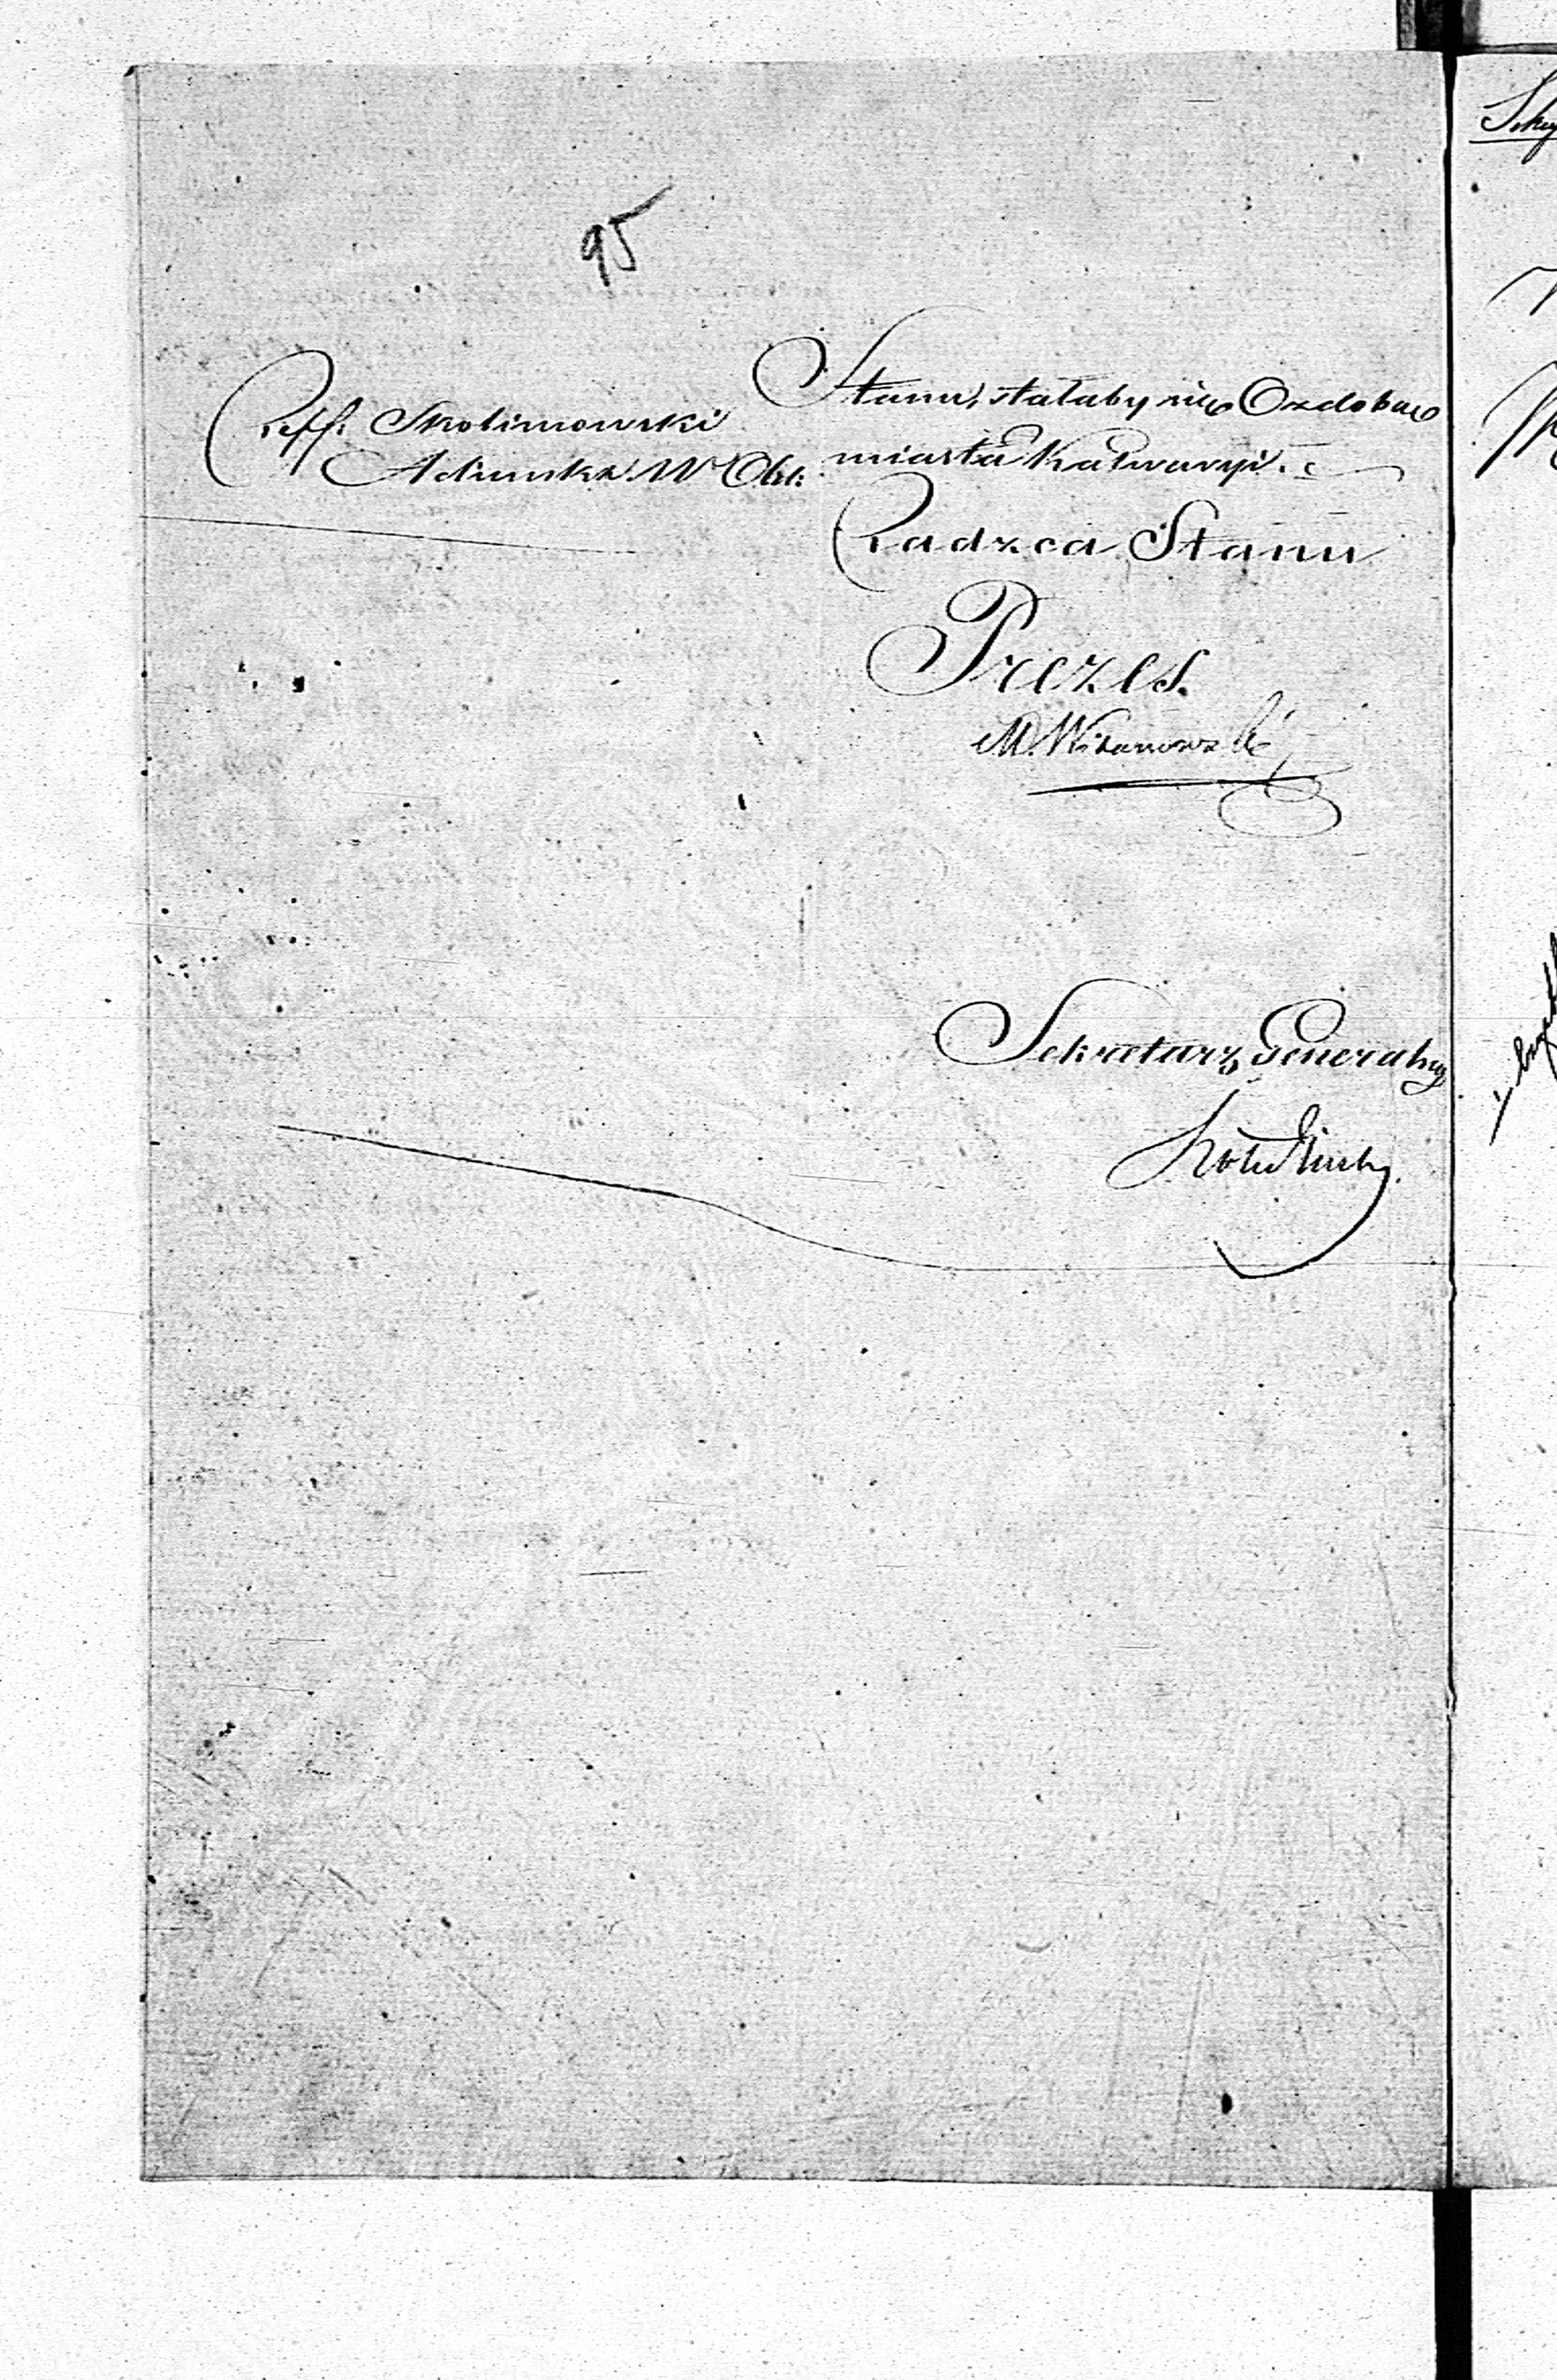 95
Stanu, stałaby się Ozdobą
miasta Kalwaryi.
Reff. Skolimowski
Adiunkt W Obl:
Radzca Stanu
Prezes.
M. Wiszanowski
Sekretarz Generalny